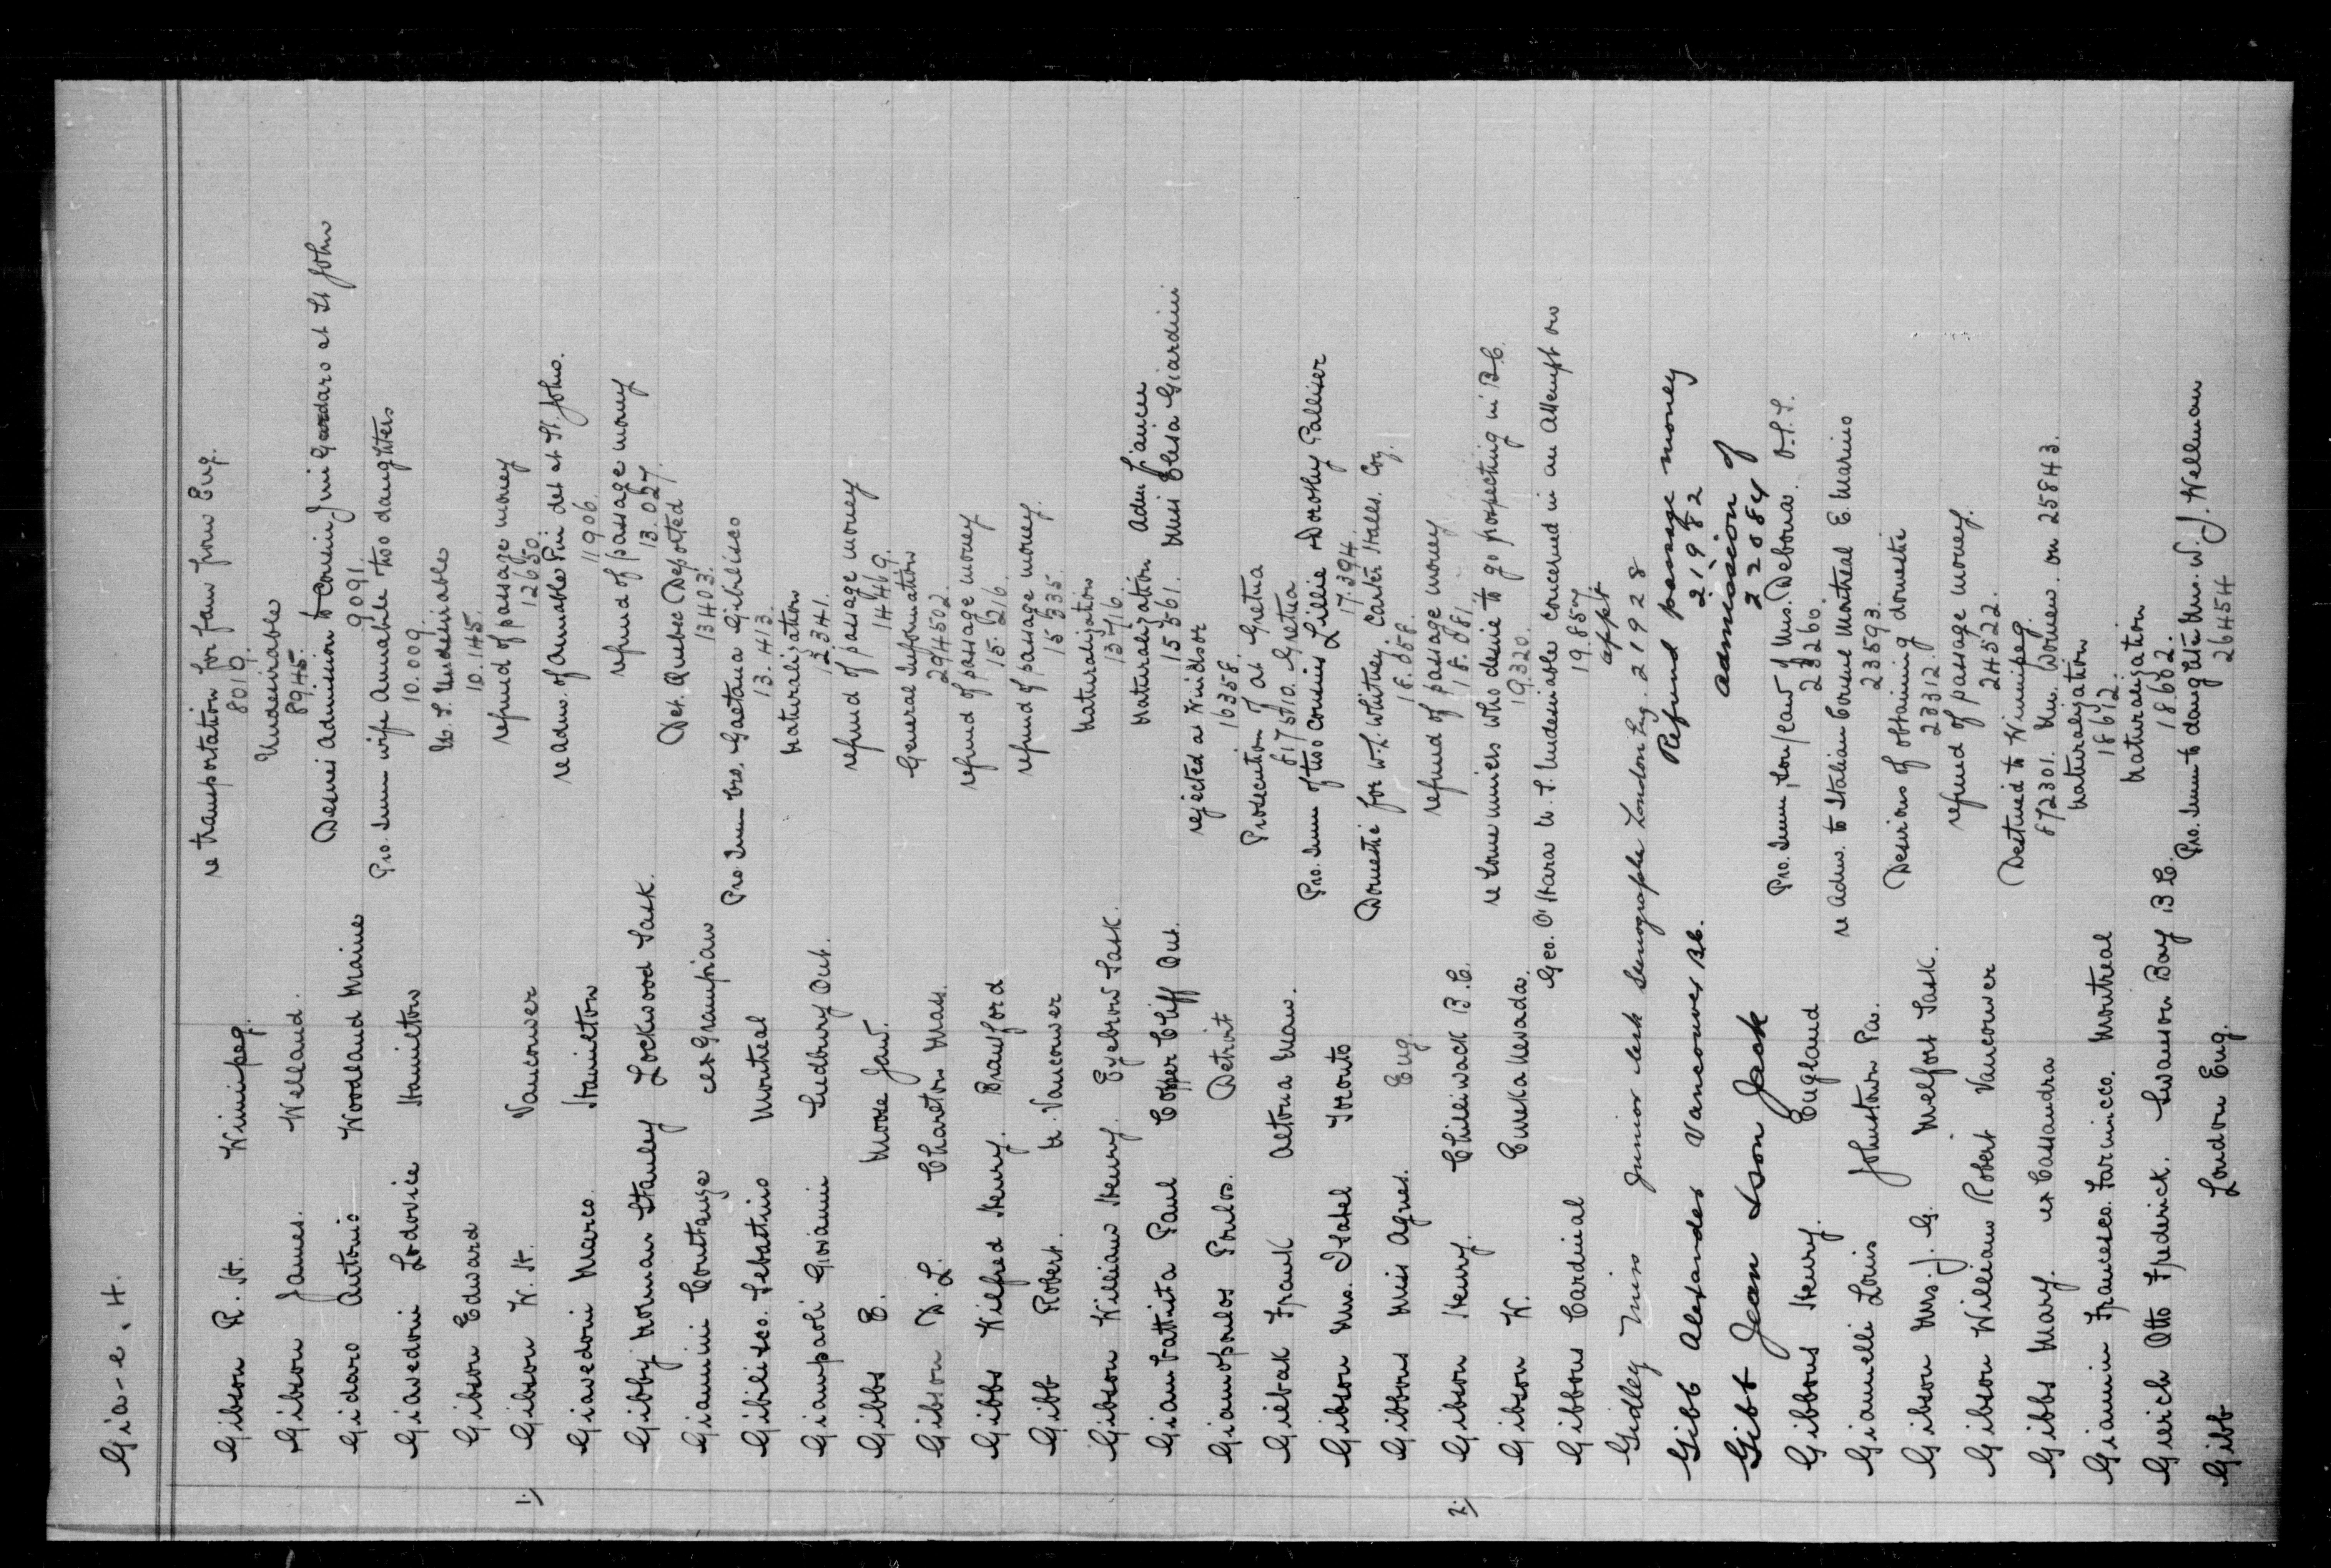 Gia-e. H.
Gibson R. H. Winnipeg. re transportation for fam from Eng.
8019.
Gibson James. Welland. Undesirable
8945.
Gidaro Antonio Woodland Maine Desires admission to cousin Jmi Gardaro at St John
9091.
Giavedoni Lodovico Hamilton Pro. Imm wife Annabile two daughters
10.009.
Gibson Edward U. S. Undesirable
10.145.
1) Gibson W. H. Vancouver refund of passage money
12650.
Giavedoni Marco. Hamilton re Adms. of Annabile Pin det at St. Johns.
11906.
Gibby Norman Stanley Lockwood Sask. refund of passage money
13.027.
Giannini Constanze ex Grampian Det. Quebec Deported
13403.
Gibilisco. Sebatino Montreal Pro. Imm bro. Gaetana Gibilisco
13.413.
Giampaoli Giovanni Sudbury Ont. Naturalization
12341.
Gibbs E. Moose Jaw. refund of passage money
14469.
Gibson D. L. Charlton Mass. General Information
294502.
Gibbs Wilfred Henry. Brantford refund of passage money
15.216.
Gibb Robert. N. Vancouver refund of passage money.
15535.
Gibson William Henry. Eyebrow Sask. Naturalization
13716.
Giambattista Paul Copper Cliff Ont. Naturalization Adm fiancee
15561. Miss Elisa Giardini
Giannopoulos Poulos. Detroit rejected at Windsor
16358.
Giebak Frank Altona Man. Prosecution of at Gretna
617510. Gretna
Gibson Mrs. Isabel Toronto Pro. Imm of two cousins Lillie & Dorothy Palliser
17.394.
Gibbons Miss Agnes. Eng. Domestic for W. L. Whitney, Carter Halls. Coy.
18.058.
2) Gibson Henry. Chilliwack B. C. refund of passage money
18.081.
Gibson W. Eureka Nevada. re some miners who desire to go prospecting in B.C.
19.320.
Gibbons Cardinal Geo. O'Hara U. S. Undesirable concerned in an attempt on
19.857
Gidley Miss Junior clerk Stenographer London Eng. 21928 appt.
Gibb Alexander Vancouver B.C. Refund passage money
21982
Gibb Jean & son Jack admission of
22084
Gibbons Henry. England Pro. Imm, Son/law of Mrs. Debona. O.I.S.
23260.
Gianelli Louis Johnstown Pa. re Adms. to Italian Consul Montreal E. Marino
23593.
Gibson Mrs. J. G. Melfort Sask. Desirous of obtaining domestic
23312.
Gibson William Robert Vancouver refund of passage money.
24522.
Gibbs Mary. ex Cassandra Destined to Winnipeg.
672301. Un. Women. on 25843.
Giannin Francesco. Farinicco. Montreal Naturalization
18612.
Gierich Otto Frederick. Swanson Bay B C. Naturalization
18682.
Gibb London Eng. Pro. Imm to daughter Mrs. W. J. Wellman
26454